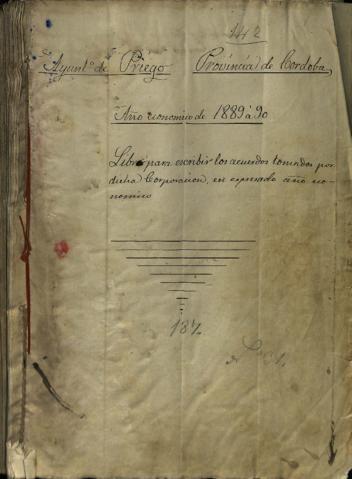 142
Ayunt.º de Priego Provincia de Cordoba
Año economico de 1889 á 90
Libro para escribir los acuerdos tomados por
dicha Corporacion, en expresado año eco-
nomico
187